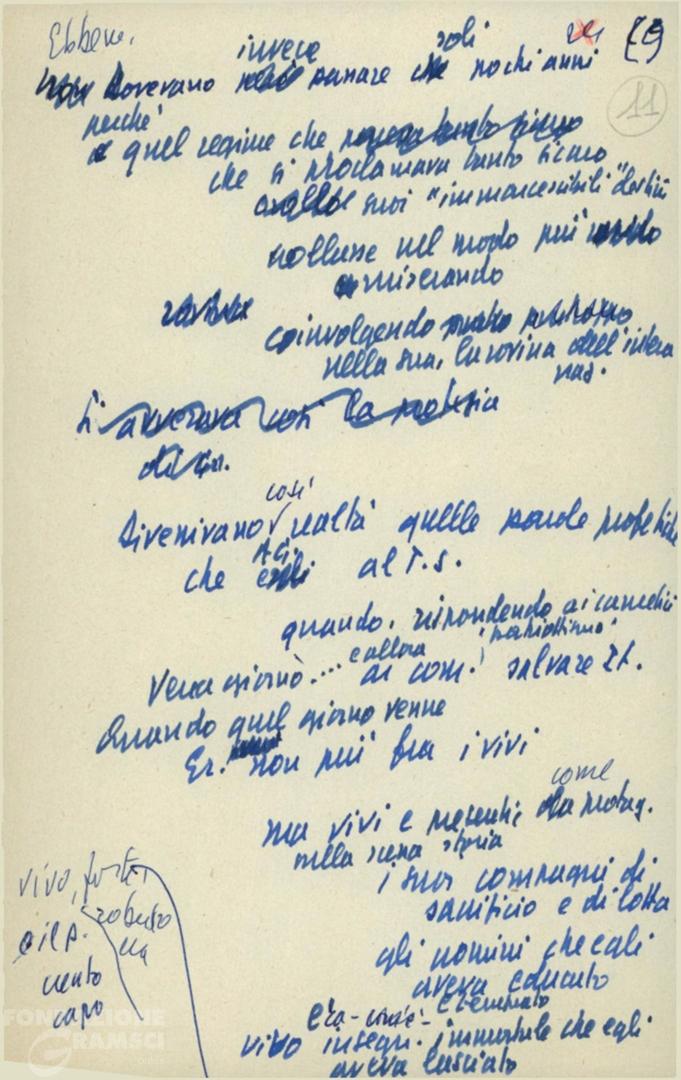 Ebbene,
invece soli
dovevano passare che pochi anni
11
perché
quel regime che
che si proclamava tanto sicuro
suoi "immarcescibili" destini
crollasse nel modo più
miserando
coinvolgendo
nella sua, la rovina dell'intera
naz.
Si avverava così la profezia
di Gr.
così
Divenivano realtà quelle parole profetiche
A.G.
che egli al T.S.
quando, rispondendo ai carnefici
e allora "patriottismo"
Verrà giorno ... ai com. salvare It.
Quando quel giorno venne
Gr. non più fra i vivi
come
ma vivi e presenti, protag.
nella scena storia
i suoi compagni di
sacrificio e di lotta
gli uomini che egli
aveva educato
e temprato
era - com'è -
vivo insegn. immortale che egli
aveva lasciato
vivo, forte,
robusto
e il P.
capo
FONDAZIONE
GRAMSCI